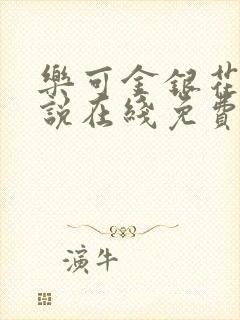 樂可金銀花
說在綫免費
演牛